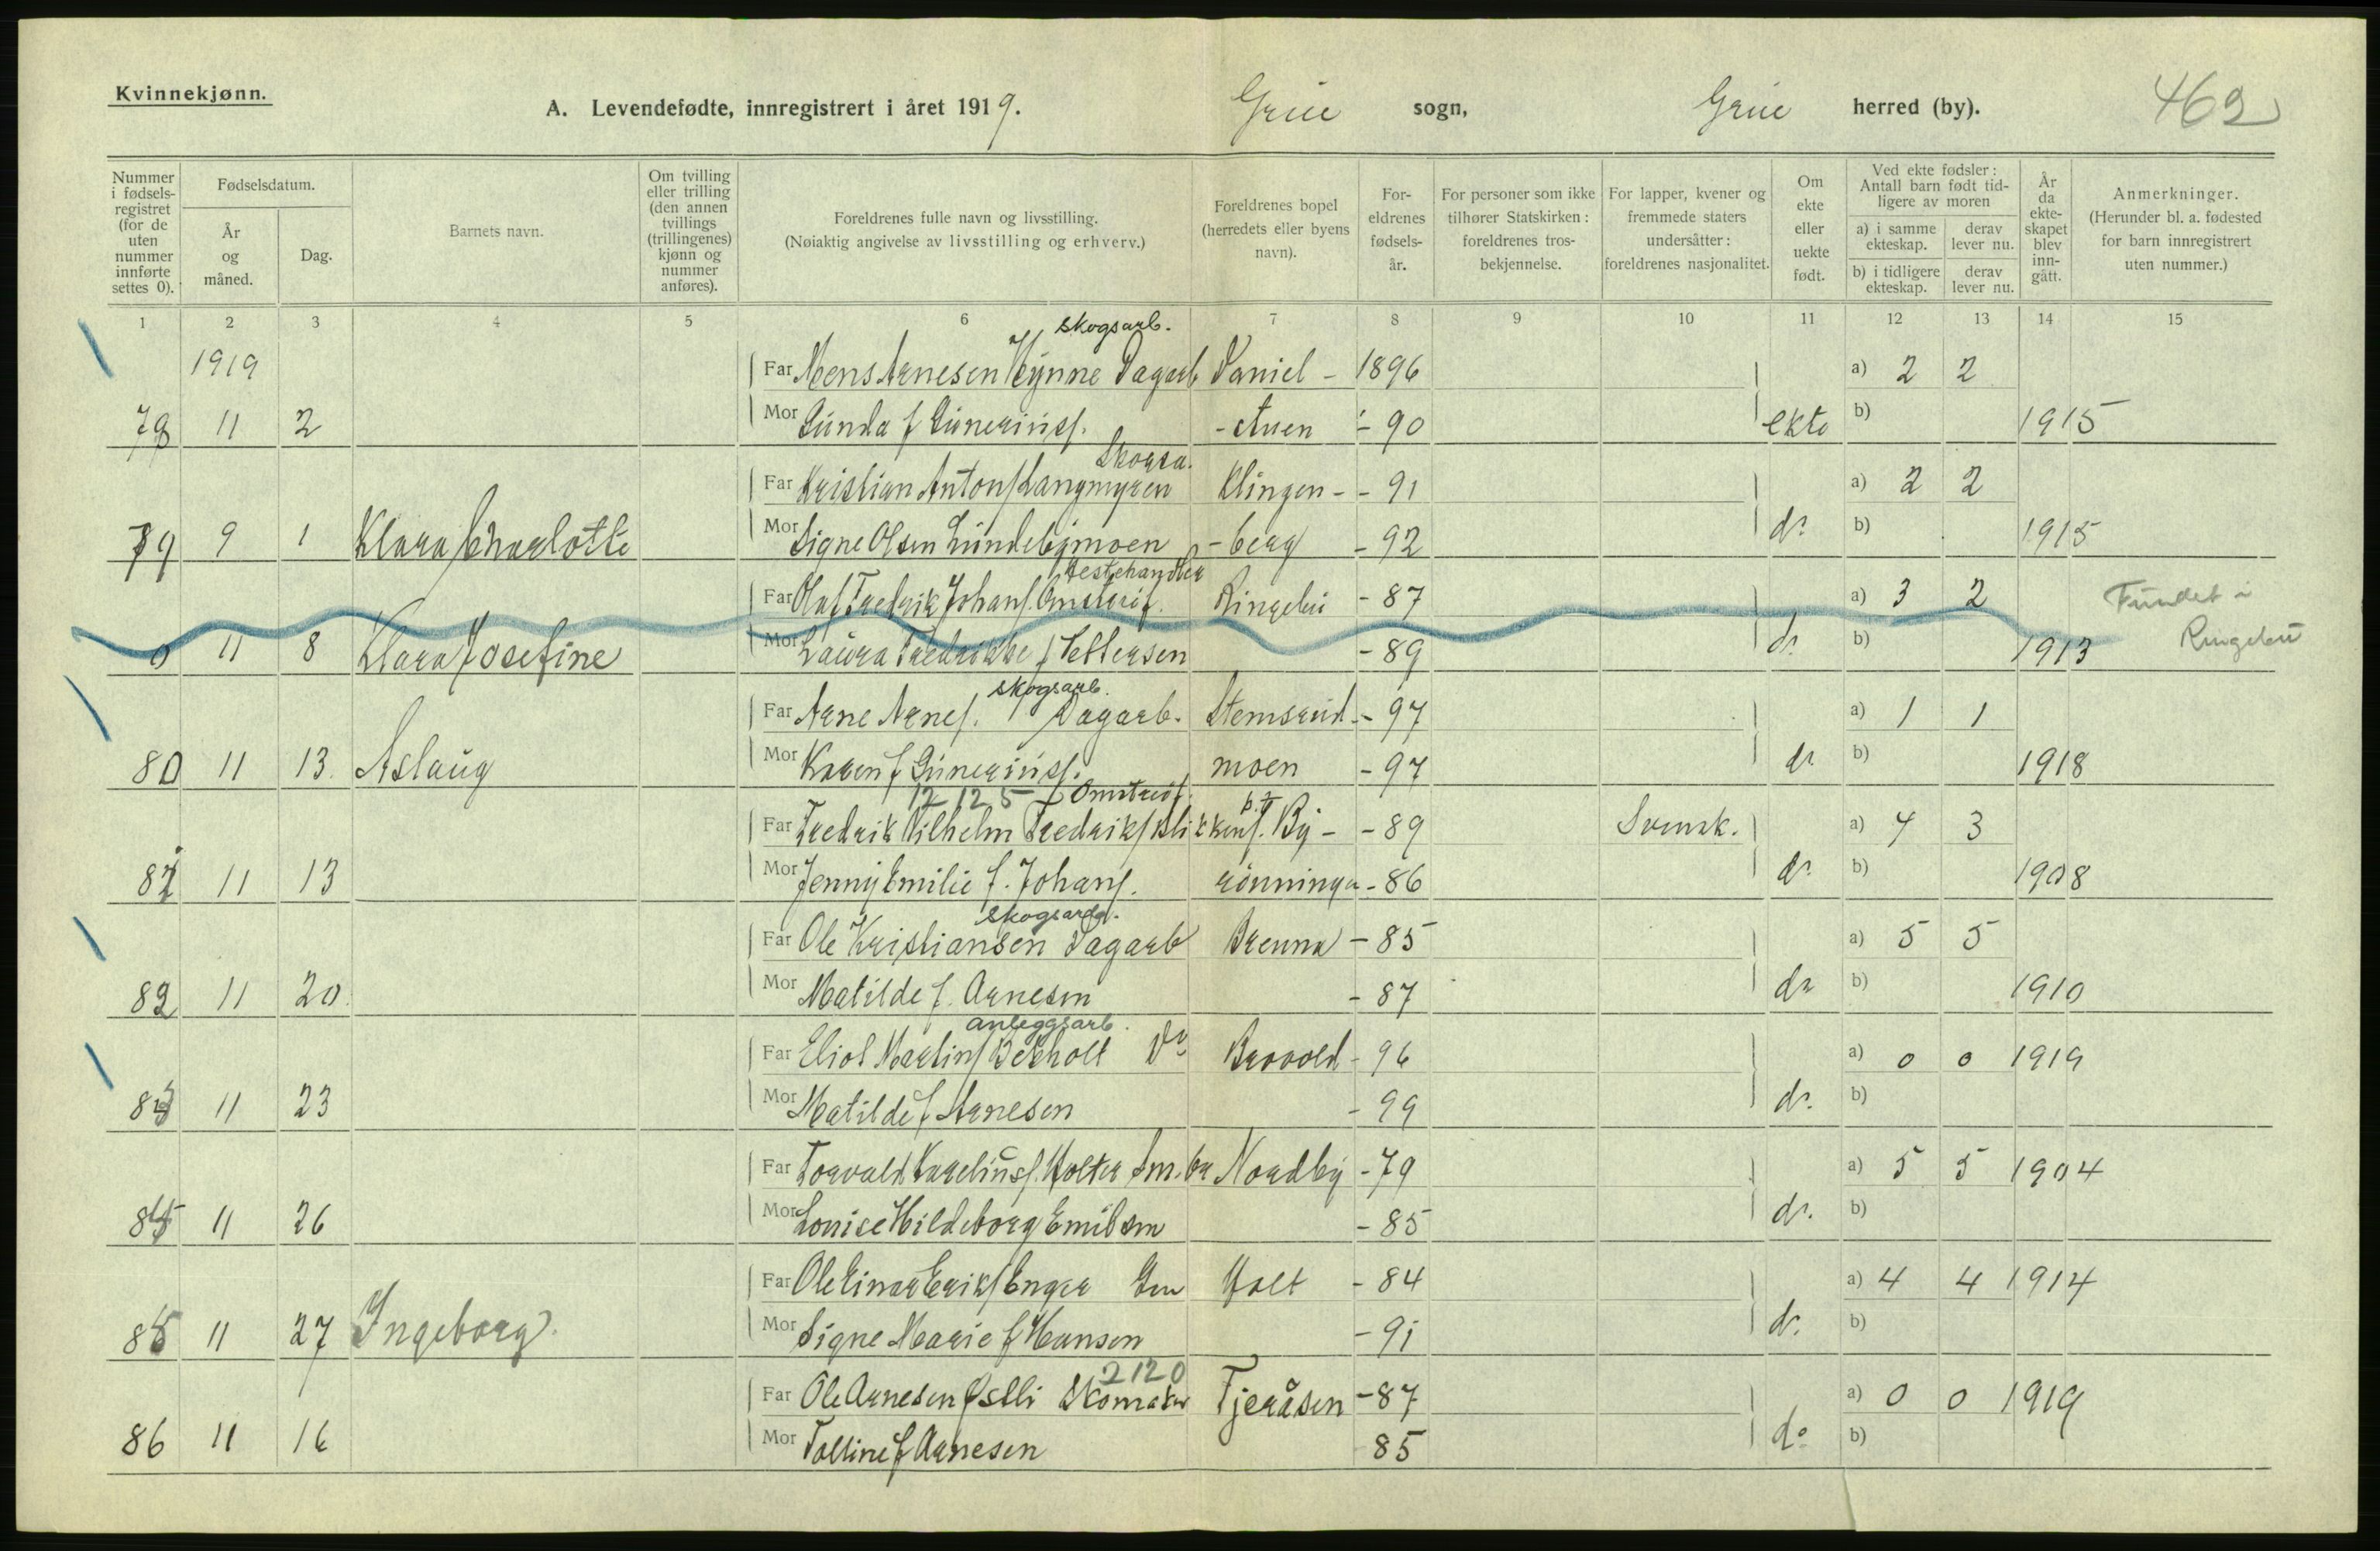 Kvinnekjønn.
A. Levendefødte, innregistrert i året 1919. Grue sogn, Grue herred (by). 462
Nummer i fødselsregistret (for de uten nummer innførte settes 0).
Fødselsdatum.
År og måned.
Dag.
Barnets navn.
Om tvilling eller trilling (den annen tvillings (trillingenes) kjønn og nummer anføres).
Foreldrenes fulle navn og livsstilling.
(Nøiaktig angivelse av livsstilling og erhverv.)
Foreldrenes bopel (herredets eller byens navn).
Foreldrenes fødselsår.
For personer som ikke tilhører Statskirken: foreldrenes trosbekjennelse.
For lapper, kvener og fremmede staters undersåtter: foreldrenes nasjonalitet.
Om ekte eller uekte født.
Ved ekte fødsler: Antall barn født tidligere av moren
a) i samme ekteskap.
derav lever nu.
b) i tidligere ekteskap.
derav lever nu.
År da ekteskapet blev inngått.
Anmerkninger.
(Herunder bl. a. fødested for barn innregistrert uten nummer.)
1 2 3 4 5 6 7 8 9 10 11 12 13 14 15
skogsarb.
1919 Far Mons Arnesen Hynne Dagarb Daniel - 1896 a) 2 2
78 11 2 Mor Gunda f Guneriusf. - stuen - 90 ekte b) 1915
Skogsa.
Far Kristian Antonf Langmyren Klingen - - 91 a) 2 2
79 9 1 Klara Charlotte Mor Signe Olsen Lundebymoen - berg - 92 do b) 1915
Hestehandler
Far Olaf Fredrik Johansf. Ringebu - 87 a) 3 2 Fundet i
0 11 8 Klara Josefine Mor Laura Fredrikke f Pettersen - 89 do b) 1913 Ringebu
skogsarb.
Far Arne Arnef. Dagarb. Stemsrud - - 97 a) 1 1
80 11 13. Aslaug Mor Karen f Guneriusf. moen - 97 do b) 1918
12 12 5
Far Fredrik Vilhelm Fredriksf By - - 89 Svensk. a) 4 3
81 11 13 Mor Jenny Emilie f. Johansf. rønningen - 86 do b) 1908
skogsarb.
Far Ole Kristiansen Dagarb Brenna - 85 a) 5 5
82 11 20. Mor Matilde f. Arnesen - 87 do b) 1910
anleggsarb.
Far Eliot Martinf Bekholt Do Brovold - 96 a) 0 0 1919
83 11 23 Mor Matilde f Arnesen - 99 do b)
Far Torvald Kareliusf. Holter Sm.br Nordby - 79 a) 5 5 1904
84 11 26 Mor Louise Hildeborg Emilsen - 85 do b)
Far Ole Einar Erikf Enger Holt - 84 a) 4 4 1914
85 11 27 Ingeborg Mor Signe Marie f Hansen - 91 do b)
2120
Far Ole Arnesen Østli Skomaker Tjeråsen - 87 a) 0 0 1919
86 11 16 Mor Tolline f Arnesen 85 do b)